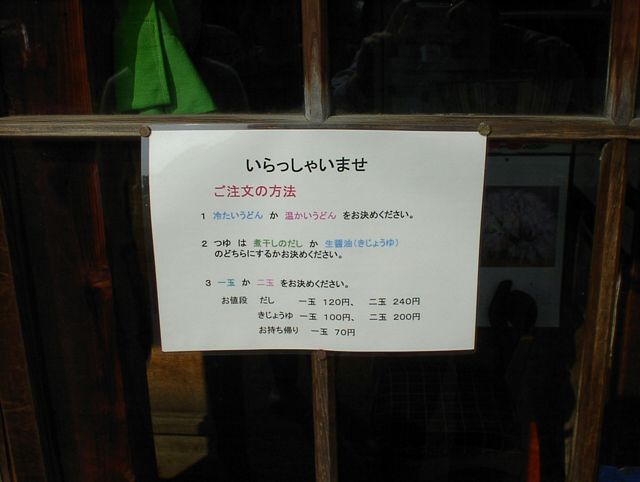 いらっしゃいませ
ご注文の方法
1 冷たいうどん か 温かいうどん をお決めください。
2 つゆ は 煮干しのだし か 生醤油(きじょうゆ)
のどちらにするかお決めください。
3 一玉 か 二玉 をお決めください。
お値段 だし 一玉 120円、 二玉 240円
きじょうゆ 一玉 100円、 二玉 200円
お持ち帰り 一玉 70円